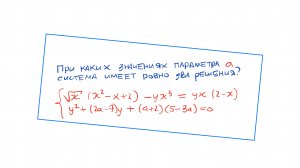 При каких значениях параметра а
система имеет ровно два решения?
{ √x (x² - x + 2) - yx³ = yx (2 - x)
y² + (2a - 7)y + (a + 2)(5 - 3a) = 0